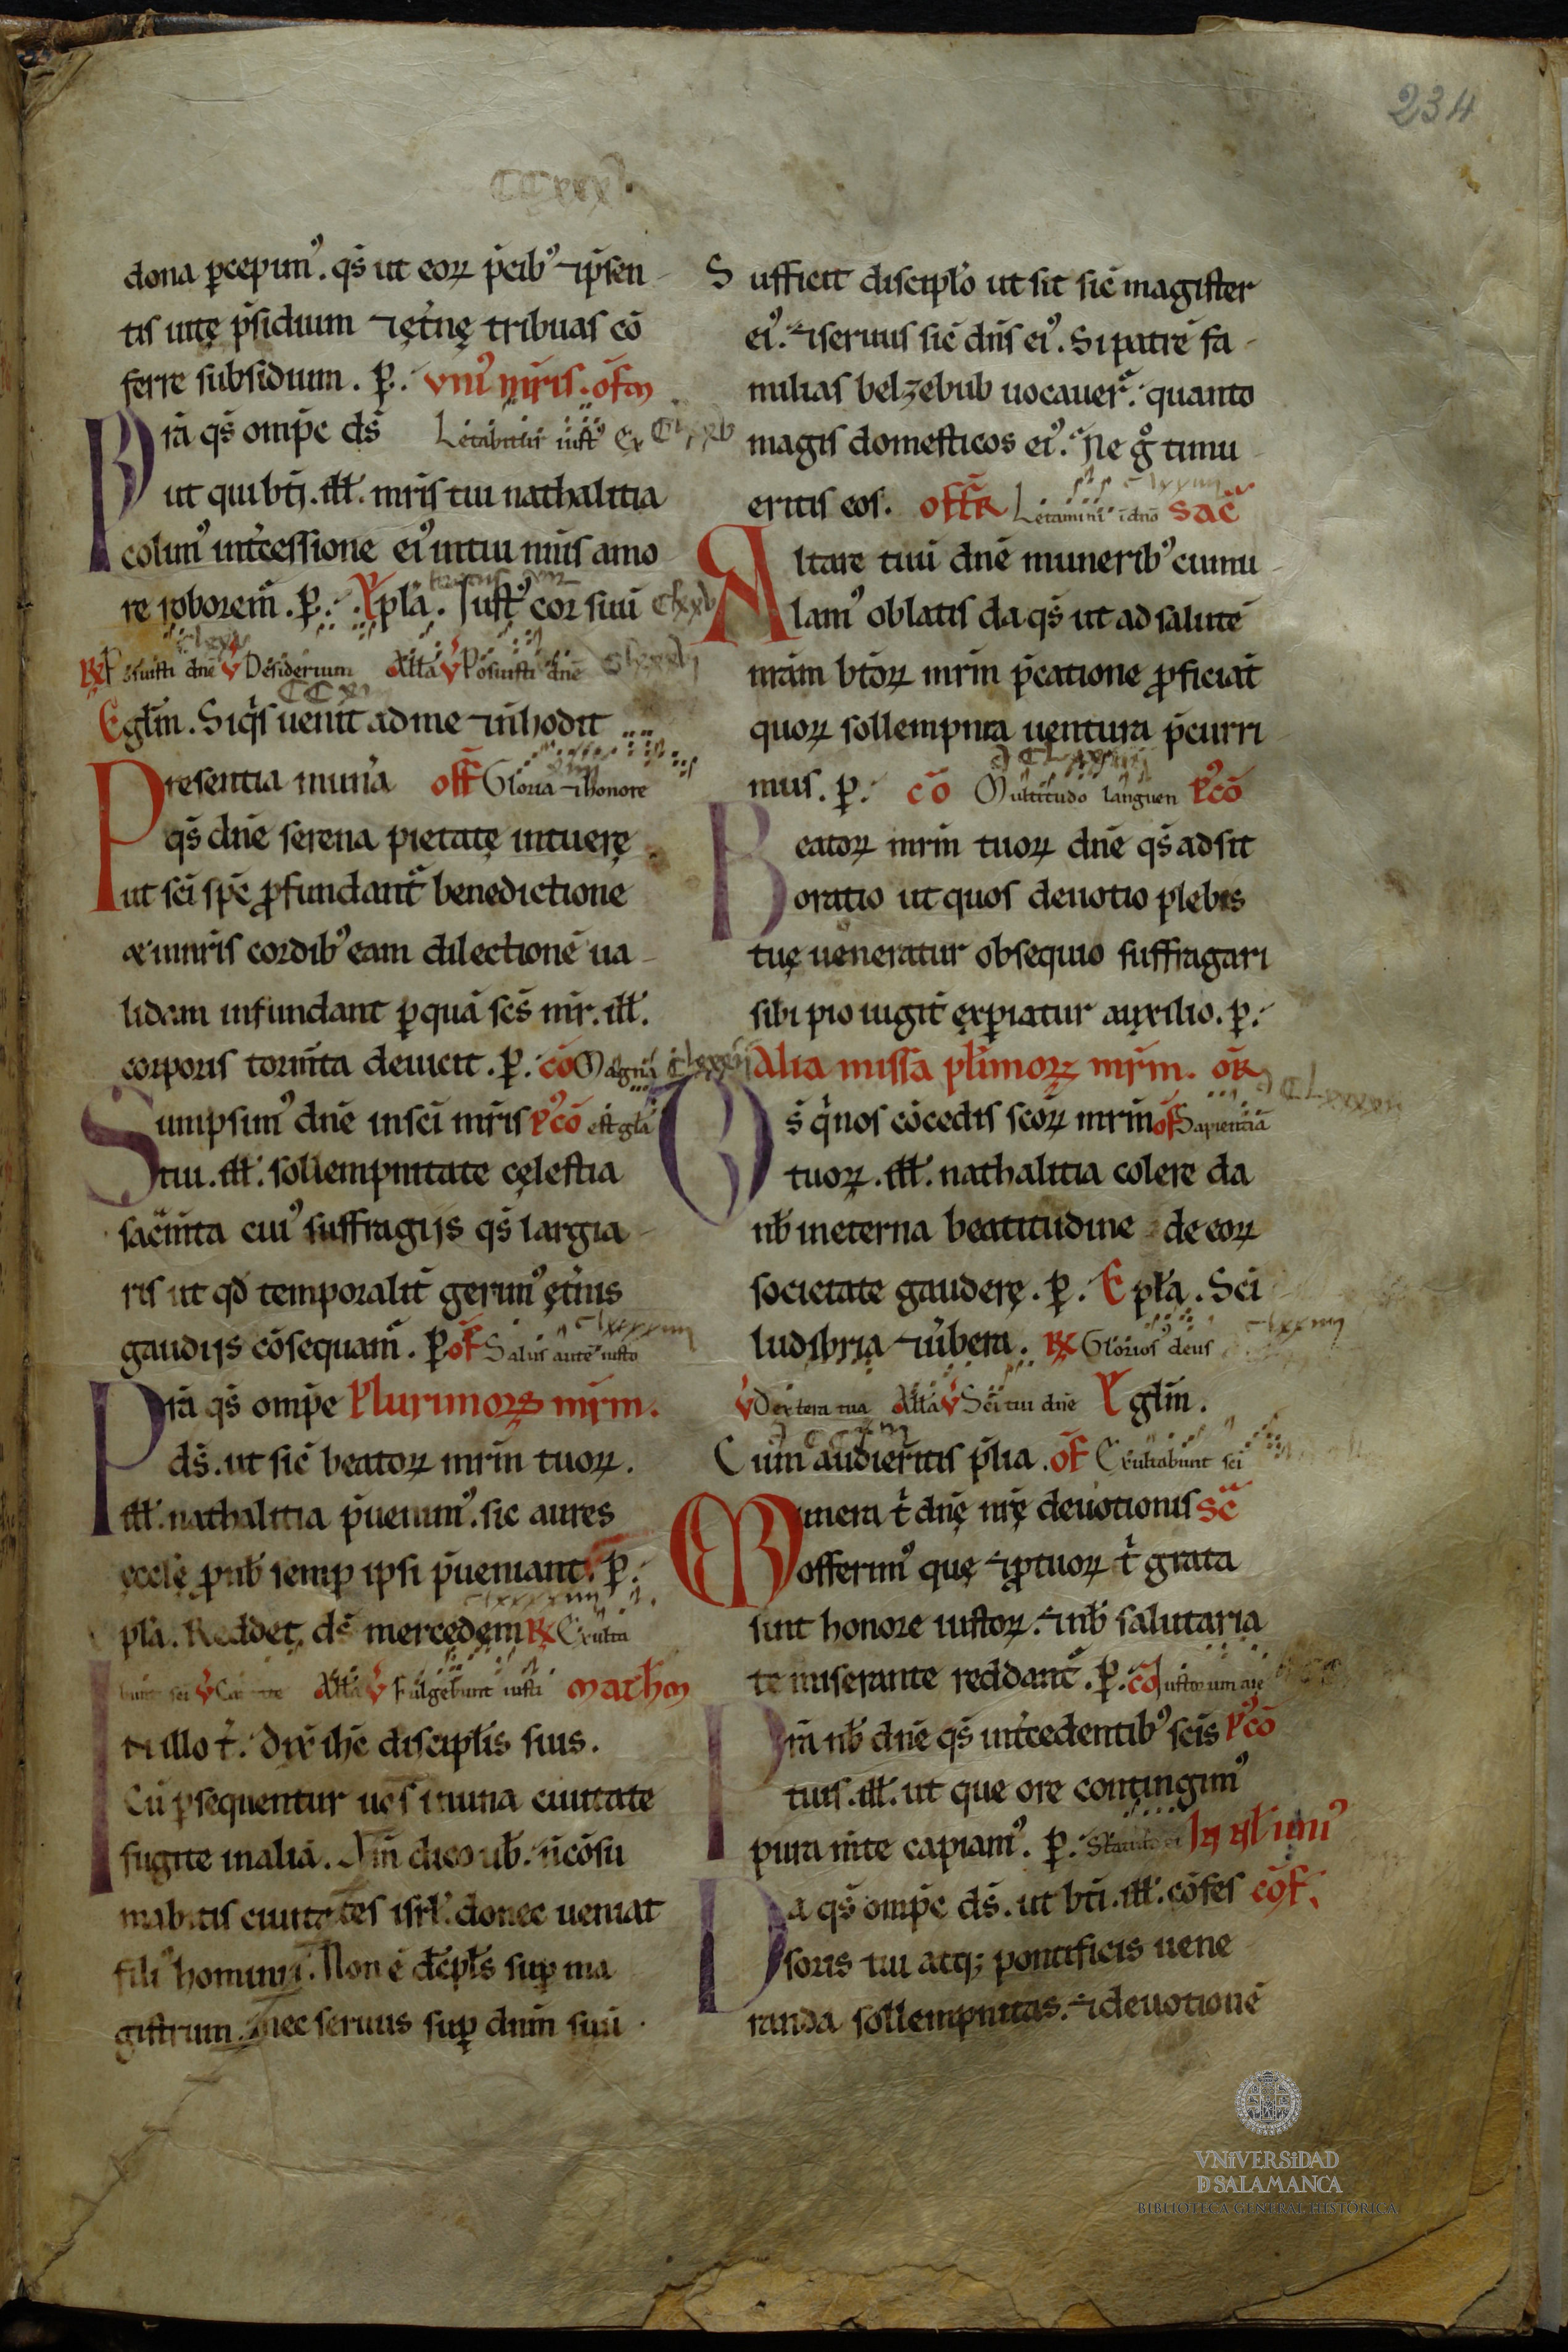 234
dona ꝑcepim᷒. qs̄ ut eoꝝ p̄cib᷒ ⁊ ip̄sen
tis uitę p̄sidium ⁊ ęt̄nę tribuas cō
ferre subsidium. ꝑ. vni᷒ mr̄is. of̄m
P rā qs̄ omp̄c ds̄ Letabitur iust᷒ Ex
ut qui bt̄i. ill̄. mr̄is tui nathalitia
colim᷒ int̄cessione ei᷒ in tui nīis amo
re roborem̄. ꝑ. Epl̄a. Iust᷒ cor suū
R̄ Posuisti dn̄e v Desiderium All̄a v Posuisti dn̄e
Egl̄m. Siq̄s uenit ad me ⁊ n̄ hodit
Presentia mun̄a off̄ Gloria ⁊ honore
qs̄ dn̄e serena pietatę intuerę
ut sc̄i sp̄c ꝓfundant̄ benedictione
⁊ in nr̄is cordib᷒ eam dilectionē ua
lidam infundant ꝑ quā sc̄s mr̄. ill̄.
corporis torm̄ta deuicit. ꝑ. cō Magna
Sumpsim᷒ dn̄e in sc̄i mr̄is p᷒cō est gl̄a
tui. ill̄. sollempnitate cęlestia
sac̄m̄ta cui᷒ suffragijs qs̄ largia
ris ut qd̄ temporalit̄ gerim᷒ ęt̄nis
gaudijs cōsequam̄. ꝑ of̄ Salus autē iusto
Prā qs̄ omp̄e Plurimoꝝ mr̄m.
ds̄. ut sic̄ beatoꝝ mr̄m tuoꝝ.
ill̄. nathalitia p̄uenim᷒. sic aures
ęcclę ꝓ nb̄ semꝑ ipsi p̄ueniant. ꝑ.
pl̄a. Reddet ds̄ mercedęm R̄ Exulta
bunt sc̄i v Cantate All̄a v Fulgebunt iusti Math̄m
In illo t̄. dix̄ ih̄c discipl̄is suis.
Cū ꝑsequentur uos in una ciuitate
fugite in aliā. Am̄ dico ub̄. n̄ cōsu
mabitis ciuitates isrl̄. donec ueniat
fili᷒ hominis. Non ē dc̄pl̄s suꝑ ma
gistrum. nec seruus suꝑ dn̄m suū.
Sufficit discipl̄o ut sit sic̄ magister
ei᷒. ⁊ seruus sic̄ dn̄s ei᷒. Si patrē fa
milias belzebub uocauer̄. quanto
magis domesticos ei᷒. Ne g̊ timu
eritis eos. off̄R Letamini in dn̄o sac̄
Altare tuū dn̄e munerib᷒ cumu
lam᷒ oblatis da qs̄ ut ad salutē
nrām bt̄oꝝ mr̄m p̄catione ꝓficiat
quoꝝ sollempnia uentura p̄curri
mus. ꝑ. cō Multitudo languen p᷒cō
Beatoꝝ mr̄m tuoꝝ dn̄e qs̄ adsit
oratio ut quos deuotio plebis
tuę ueneratur obsequio suffragari
sibi pio iugit̄ exꝑiatur auxilio. ꝑ.
Alia missa pl̄imoꝝ mr̄m. oR̄
Ds̄ q̄ nos cōcedis sc̄oꝝ mr̄m of̄ Sapientiā
tuoꝝ. ill̄. nathalitia colere da
nb̄ in eterna beatitudine de eoꝝ
societate gauderę. ꝑ. Epl̄a. Sc̄i
ludibria ⁊ ūbera. R̄ Glorios᷒ deus
v Dextera tua All̄a v Sc̄i tui dn̄e Egl̄m.
Cum audieritis p̄lia. of̄ Exultabunt sc̄i
Munera t̄ dn̄ę nr̄ę deuotionis sc̄
offerim᷒ quę ⁊ ꝓ tuoꝝ t̄ grata
sint honore iustoꝝ. ⁊ nb̄ salutaria
te miserante reddant̄. ꝑ. cō Iustorum aīe
Prā nb̄ dn̄e qs̄ int̄cedentib᷒ sc̄is p᷒cō
tuis. ill̄. ut que ore contingim᷒
pura m̄te capiam᷒. ꝑ. In nl̄ uni᷒
Da qs̄ omp̄c ds̄. ut bt̄i. ill̄. cōfes cōf.
soris tui atq; pontificis uene
randa sollempnitas. ⁊ deuotionē
VNiVERSiDAD
D SALAMANCA
BIBLIOTECA GENERAL HISTÓRICA